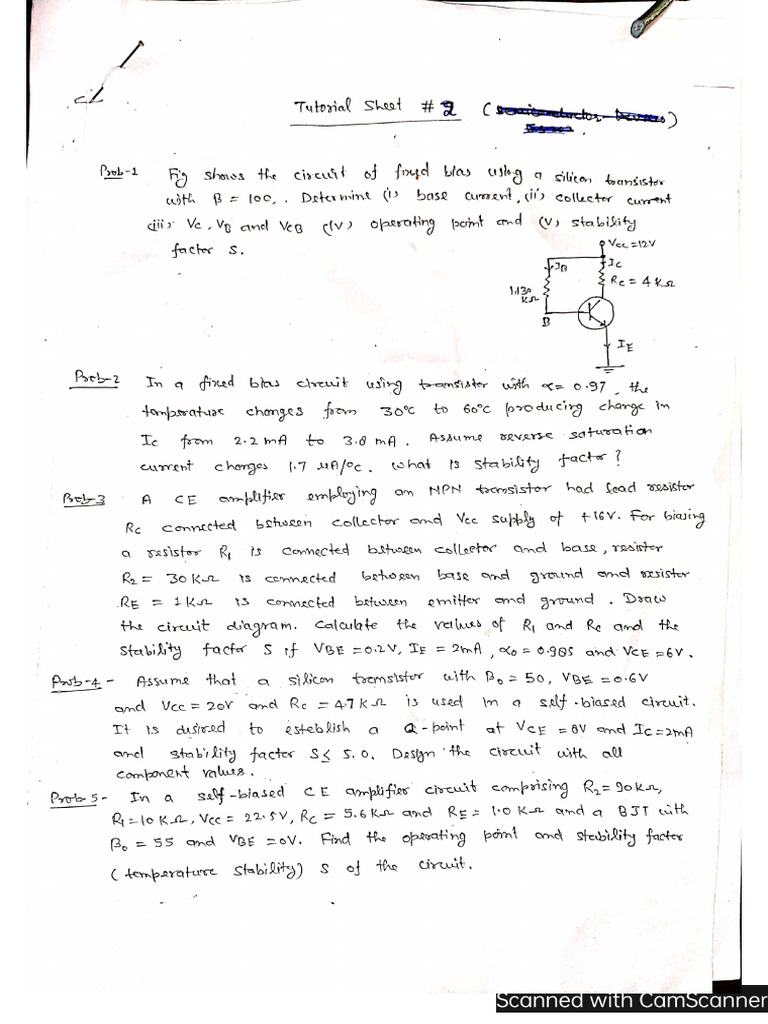 Tutorial Sheet # 2 ( )
Prob-1 Fig shows the circuit of fixed bias using a silicon transistor
with β = 100,. Determine (i) base current, (ii) collector current
(iii) Vc, VB and VCB (IV) operating point and (V) stability
factor S.
Vcc = 12V
IB
IC
RC = 4 KΩ
1,130
KΩ
B
IE
Prob-2 In a fixed bias circuit using transistor with α = 0.97, the
temperature changes from 30°C to 60°C producing change in
Ic from 2.2 mA to 3.8 mA. Assume reverse saturation
current changes 1.7 μA/°C. What is stability factor?
Prob-3 A CE amplifier employing an NPN transistor had load resistor
Rc connected between collector and Vcc supply of +16V. For biasing
a resistor R1 is connected between collector and base, resistor
R2 = 30 KΩ is connected between base and ground and resistor
RE = 1 KΩ is connected between emitter and ground. Draw
the circuit diagram. Calculate the values of R1 and Rc and the
stability factor S if VBE = 0.2V, IE = 2mA, α0 = 0.985 and VCE = 6V.
Prob-4 - Assume that a silicon transistor with β0 = 50, VBE = 0.6V
and Vcc = 20V and Rc = 4.7 KΩ is used in a self-biased circuit.
It is desired to esteblish a Q-point at VCE = 8V and Ic = 2mA
and stability factor S ≤ 5.0. Design the circuit with all
component values.
Prob 5 - In a self-biased CE amplifier circuit comprising R2 = 90 KΩ,
R1 = 10 KΩ, Vcc = 22.5V, Rc = 5.6 KΩ and RE = 1.0 KΩ and a BJT with
β0 = 55 and VBE = 0V. Find the operating point and stability factor
(temperature stability) S of the circuit.
Scanned with CamScanner